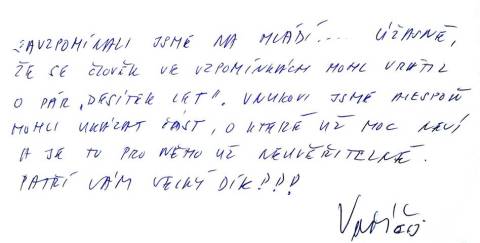 ZAVZPOMÍNALI JSME NA MLÁDÍ.... ÚŽASNÉ,
ŽE SE ČLOVĚK VE VZPOMÍNKÁCH MOHL VRÁTIL
O PÁR „DESÍTEK LET". VNUKOVI JSME ALESPOŇ
MOHLI UKÁZAT ČÁST, O KTERÉ UŽ MOC NEVÍ
A JE TO PRO NĚMU UŽ NEUVĚŘITELNÉ.
PATŘÍ VÁM VELKÝ DÍK!!!